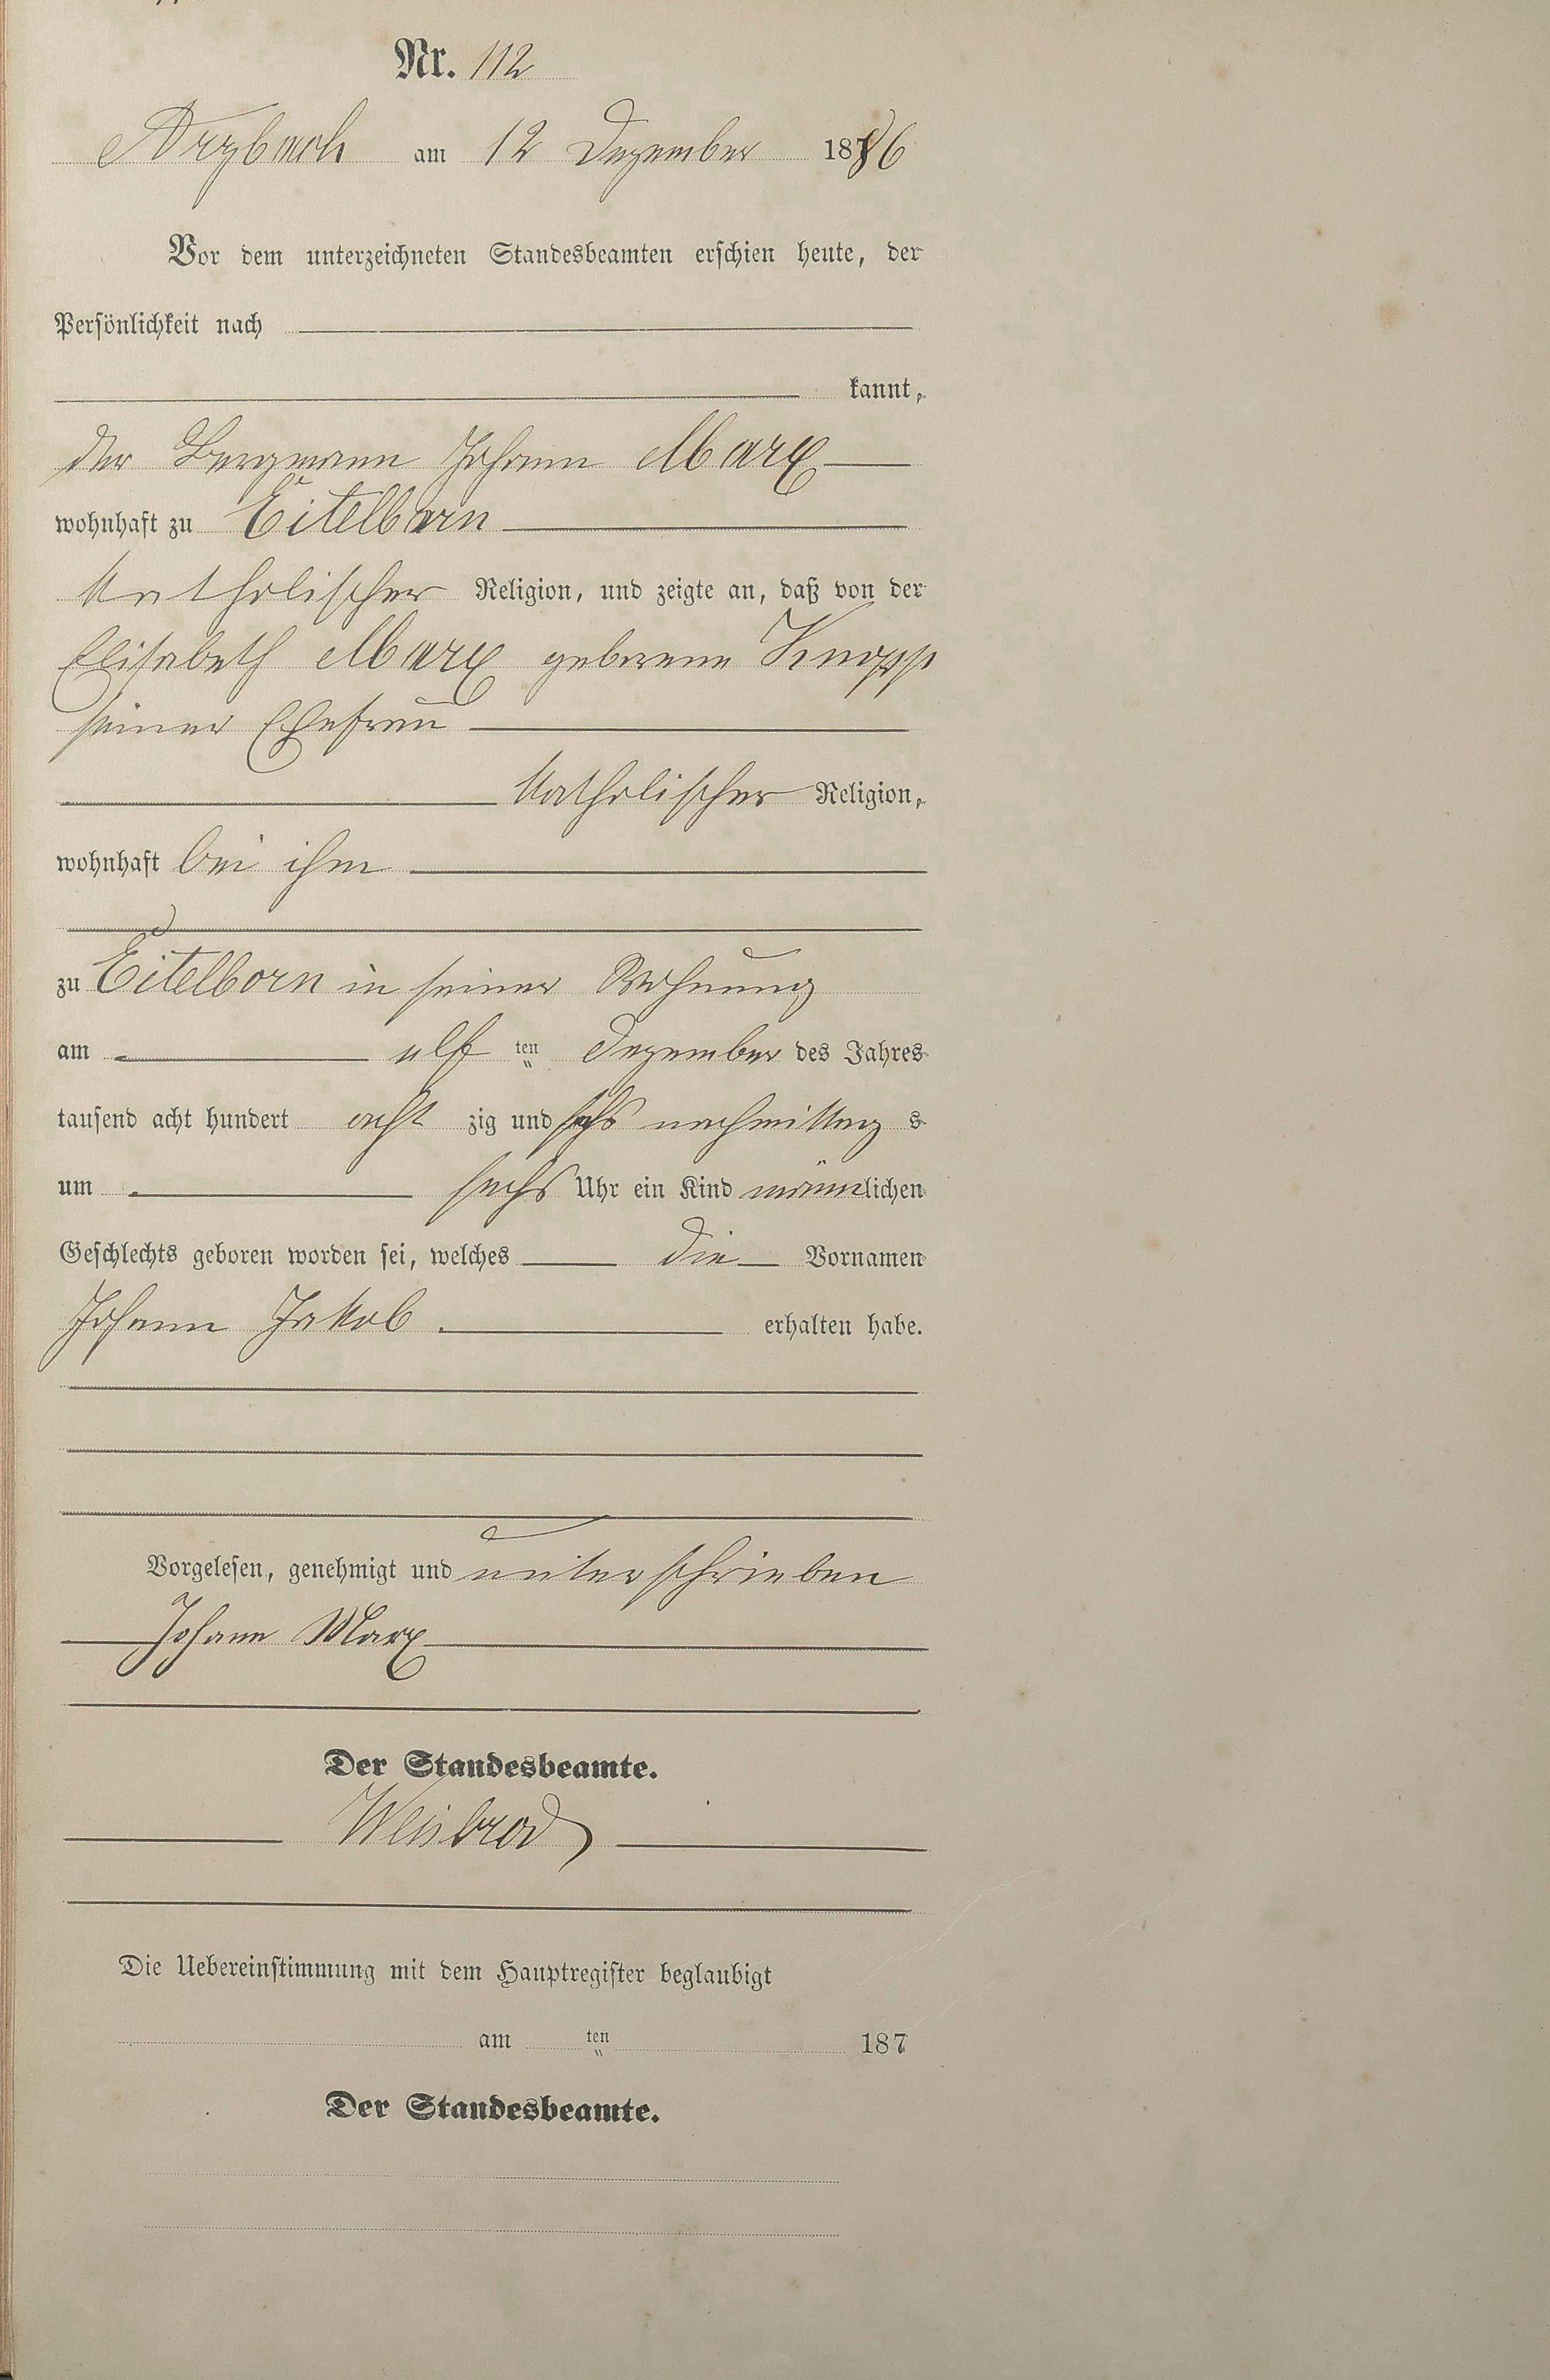 Nr. 112
Arzbach am 12 Dezember 1886
Vor dem unterzeichneten Standesbeamten erschien heute, der
Persönlichkeit nach
kannt,
der Bergmann Johann Marx
wohnhaft zu Eitelborn
katholischer Religion, und zeigte an, daß von der
Elisabeth Marx geborene Knopp
seiner Ehefrau
katholischer Religion,
wohnhaft bei ihm
zu Eitelborn in seiner Wohnung
am elf ten Dezember des Jahres
tausend acht hundert acht zig und sechs nachmittag s
um sechs Uhr ein Kind männlichen
Geschlechts geboren worden sei, welches die Vornamen
Johann Jakob erhalten habe.
Vorgelesen, genehmigt und unterschrieben
Johann Marx
Der Standesbeamte.
Weisbrod
Die Uebereinstimmung mit dem Hauptregister beglaubigt
am ten 187
Der Standesbeamte.